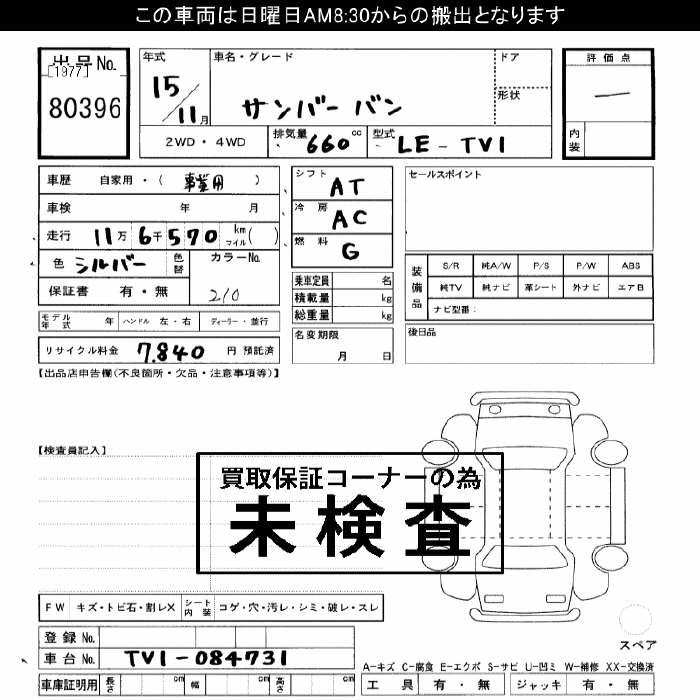 この車両は日曜日AM8:30からの搬出となります
出品No.
[1977]
80396
年式
15/11月
車名・グレード
サンバー バン
ドア
形状
2WD・4WD
排気量 660cc
型式 LE-TV1
評価点
—
内装
車歴 自家用・(事業用)
車検 年 月
走行 11万6千570 km マイル( )
色 シルバー 色替
カラーNo.
210
保証書 有・無
シフト AT
冷房 AC
燃料 G
乗車定員 名
積載量 kg
総重量 kg
セールスポイント
装備品 S/R 純A/W P/S P/W ABS
純TV 純ナビ 革シート 外ナビ エアB
ナビ型番:
モデル年式 年 ハンドル 左・右 ディーラー・並行
名変期限
月 日
後日品
リサイクル料金 7,840 円 預託済
【出品店申告欄(不良箇所・欠品・注意事項等)】
【検査員記入】
買取保証コーナーの為
未検査
FW キズ・トビ石・割レX シート内装 コゲ・穴・汚レ・シミ・破レ・スレ
登録No.
車台No. TV1-084731
車庫証明用 長さ cm 幅 cm 高さ cm
スペア
A-キズ C-腐食 E-エクボ S-サビ U-凹ミ W-補修 XX-交換済
工具 有・無 ジャッキ 有・無